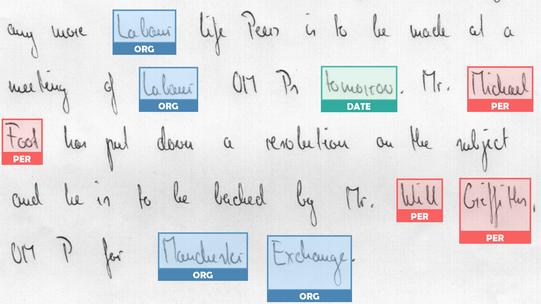 any more Labour life Peers is to be made at a
ORG
meeting of Labour OM Ps tomorrow. Mr. Michael
ORG DATE PER
Foot has put down a resolution on the subject
PER
and he is to be backed by Mr. Will Griffiths,
PER PER
OM P for Manchester Exchange.
ORG ORG